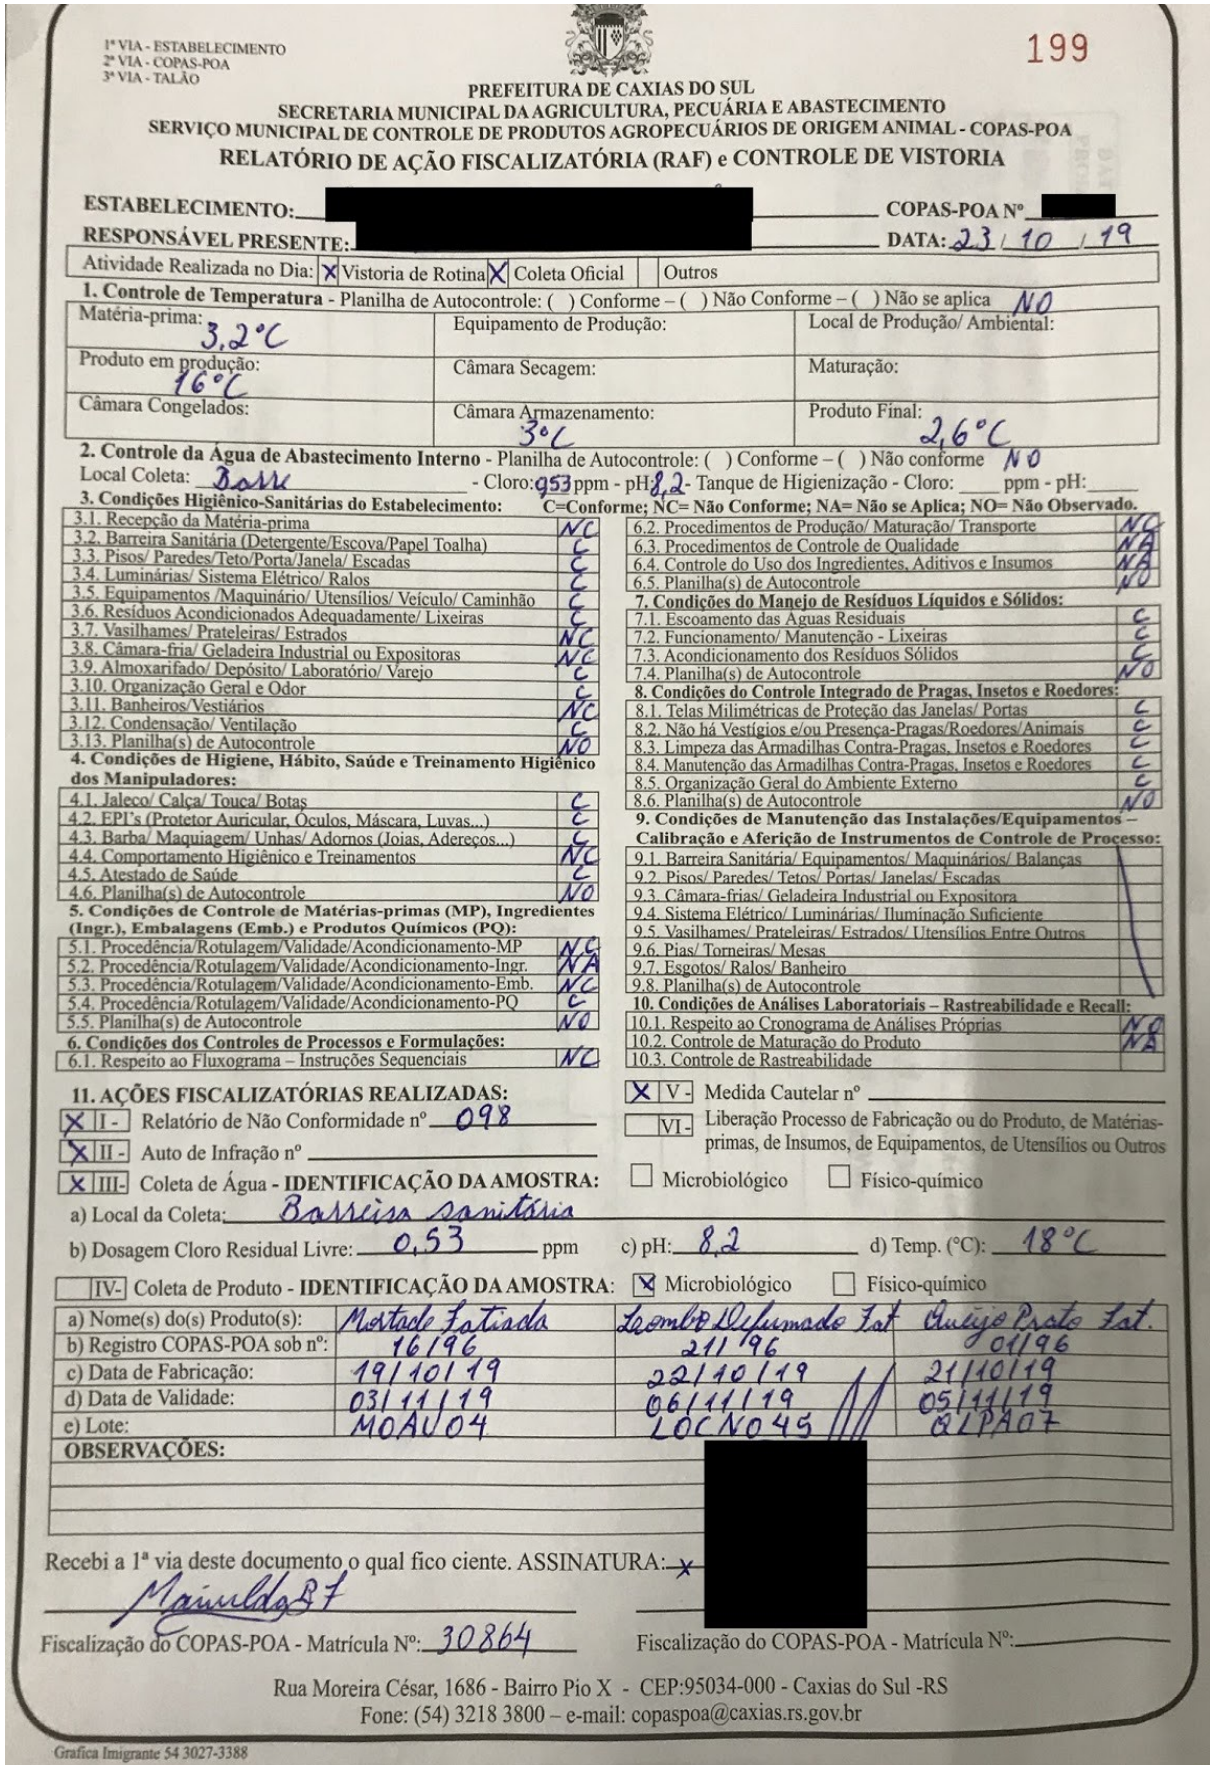 1ª VIA - ESTABELECIMENTO
2ª VIA - COPAS-POA
3ª VIA - TALÃO
199
PREFEITURA DE CAXIAS DO SUL
SECRETARIA MUNICIPAL DA AGRICULTURA, PECUÁRIA E ABASTECIMENTO
SERVIÇO MUNICIPAL DE CONTROLE DE PRODUTOS AGROPECUÁRIOS DE ORIGEM ANIMAL - COPAS-POA
RELATÓRIO DE AÇÃO FISCALIZATÓRIA (RAF) e CONTROLE DE VISTORIA
ESTABELECIMENTO: COPAS-POA Nº
RESPONSÁVEL PRESENTE: DATA: 23/10/19
Atividade Realizada no Dia: X Vistoria de Rotina X Coleta Oficial Outros
1. Controle de Temperatura - Planilha de Autocontrole: ( ) Conforme – ( ) Não Conforme – ( ) Não se aplica NO
Matéria-prima: 3,2°C Equipamento de Produção: Local de Produção/ Ambiental:
Produto em produção: 16°C Câmara Secagem: Maturação:
Câmara Congelados: Câmara Armazenamento: 3°C Produto Final: 2,6°C
2. Controle da Água de Abastecimento Interno - Planilha de Autocontrole: ( ) Conforme – ( ) Não conforme NO
Local Coleta: Barre - Cloro: 0,53 ppm - pH: 8,2 - Tanque de Higienização - Cloro: ____ ppm - pH:____
3. Condições Higiênico-Sanitárias do Estabelecimento: C=Conforme; NC= Não Conforme; NA= Não se Aplica; NO= Não Observado.
3.1. Recepção da Matéria-prima NC
3.2. Barreira Sanitária (Detergente/Escova/Papel Toalha) C
3.3. Pisos/ Paredes/Teto/Porta/Janela/ Escadas C
3.4. Luminárias/ Sistema Elétrico/ Ralos C
3.5. Equipamentos /Maquinário/ Utensílios/ Veículo/ Caminhão C
3.6. Resíduos Acondicionados Adequadamente/ Lixeiras C
3.7. Vasilhames/ Prateleiras/ Estrados NC
3.8. Câmara-fria/ Geladeira Industrial ou Expositoras NC
3.9. Almoxarifado/ Depósito/ Laboratório/ Varejo C
3.10. Organização Geral e Odor C
3.11. Banheiros/Vestiários NC
3.12. Condensação/ Ventilação C
3.13. Planilha(s) de Autocontrole NO
4. Condições de Higiene, Hábito, Saúde e Treinamento Higiênico
dos Manipuladores:
4.1. Jaleco/ Calça/ Touca/ Botas C
4.2. EPI's (Protetor Auricular, Óculos, Máscara, Luvas...) C
4.3. Barba/ Maquiagem/ Unhas/ Adornos (Joias, Adereços...) C
4.4. Comportamento Higiênico e Treinamentos NC
4.5. Atestado de Saúde C
4.6. Planilha(s) de Autocontrole NO
5. Condições de Controle de Matérias-primas (MP), Ingredientes
(Ingr.), Embalagens (Emb.) e Produtos Químicos (PQ):
5.1. Procedência/Rotulagem/Validade/Acondicionamento-MP NC
5.2. Procedência/Rotulagem/Validade/Acondicionamento-Ingr. NA
5.3. Procedência/Rotulagem/Validade/Acondicionamento-Emb. NC
5.4. Procedência/Rotulagem/Validade/Acondicionamento-PQ C
5.5. Planilha(s) de Autocontrole NO
6. Condições dos Controles de Processos e Formulações:
6.1. Respeito ao Fluxograma – Instruções Sequenciais NC
6.2. Procedimentos de Produção/ Maturação/ Transporte NC
6.3. Procedimentos de Controle de Qualidade NA
6.4. Controle do Uso dos Ingredientes, Aditivos e Insumos NA
6.5. Planilha(s) de Autocontrole NO
7. Condições do Manejo de Resíduos Líquidos e Sólidos:
7.1. Escoamento das Águas Residuais C
7.2. Funcionamento/ Manutenção - Lixeiras C
7.3. Acondicionamento dos Resíduos Sólidos C
7.4. Planilha(s) de Autocontrole NO
8. Condições do Controle Integrado de Pragas, Insetos e Roedores:
8.1. Telas Milimétricas de Proteção das Janelas/ Portas C
8.2. Não há Vestígios e/ou Presença-Pragas/Roedores/Animais C
8.3. Limpeza das Armadilhas Contra-Pragas, Insetos e Roedores C
8.4. Manutenção das Armadilhas Contra-Pragas, Insetos e Roedores C
8.5. Organização Geral do Ambiente Externo C
8.6. Planilha(s) de Autocontrole NO
9. Condições de Manutenção das Instalações/Equipamentos –
Calibração e Aferição de Instrumentos de Controle de Processo:
9.1. Barreira Sanitária/ Equipamentos/ Maquinários/ Balanças
9.2. Pisos/ Paredes/ Tetos/ Portas/ Janelas/ Escadas
9.3. Câmara-frias/ Geladeira Industrial ou Expositora
9.4. Sistema Elétrico/ Luminárias/ Iluminação Suficiente
9.5. Vasilhames/ Prateleiras/ Estrados/ Utensílios Entre Outros
9.6. Pias/ Torneiras/ Mesas
9.7. Esgotos/ Ralos/ Banheiro
9.8. Planilha(s) de Autocontrole
10. Condições de Análises Laboratoriais – Rastreabilidade e Recall:
10.1. Respeito ao Cronograma de Análises Próprias NO
10.2. Controle de Maturação do Produto NA
10.3. Controle de Rastreabilidade
11. AÇÕES FISCALIZATÓRIAS REALIZADAS:
X I - Relatório de Não Conformidade nº 098
X II - Auto de Infração nº
X III- Coleta de Água - IDENTIFICAÇÃO DA AMOSTRA: Microbiológico Físico-químico
X V - Medida Cautelar nº
VI - Liberação Processo de Fabricação ou do Produto, de Matérias-
primas, de Insumos, de Equipamentos, de Utensílios ou Outros
a) Local da Coleta: Barreira sanitária
b) Dosagem Cloro Residual Livre: 0,53 ppm c) pH: 8,2 d) Temp. (°C): 18°C
IV- Coleta de Produto - IDENTIFICAÇÃO DA AMOSTRA: X Microbiológico Físico-químico
a) Nome(s) do(s) Produto(s): Mortade Fatiada Lombo Defumado Fat Queijo Prato Fat.
b) Registro COPAS-POA sob nº: 16/96 21/96 01/96
c) Data de Fabricação: 19/10/19 22/10/19 21/10/19
d) Data de Validade: 03/11/19 06/11/19 05/11/19
e) Lote: MOAV04 LOCNO45 QLPA07
OBSERVAÇÕES:
Recebi a 1ª via deste documento o qual fico ciente. ASSINATURA: x
Fiscalização do COPAS-POA - Matrícula Nº: 30864 Fiscalização do COPAS-POA - Matrícula Nº:
Rua Moreira César, 1686 - Bairro Pio X - CEP:95034-000 - Caxias do Sul -RS
Fone: (54) 3218 3800 – e-mail: copaspoa@caxias.rs.gov.br
Grafica Imigrante 54 3027-3388